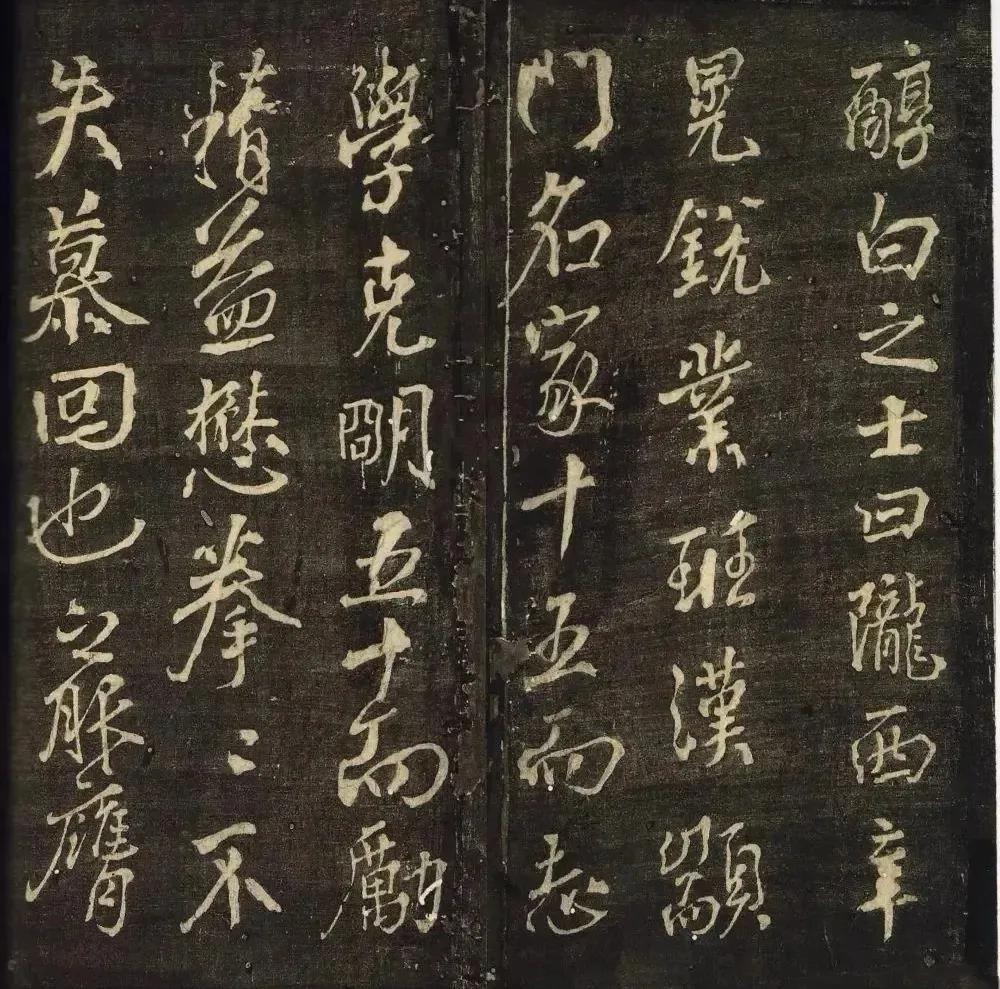 醇白之士曰隴西辛
晃銳業班漢顓
門名家十五而志
學克朙五十而勵
精益懋拳〻不
失慕回也之服膺